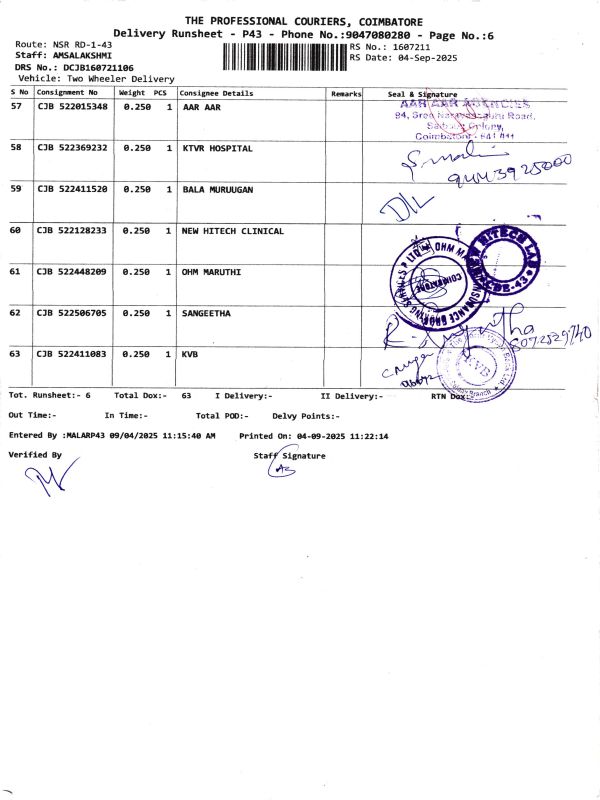 THE PROFESSIONAL COURIERS, COIMBATORE
Delivery Runsheet - P43 - Phone No.:9047080280 - Page No.:6
Route: NSR RD-1-43
RS No.: 1607211
Staff: AMSALAKSHMI
RS Date: 04-Sep-2025
DRS No.: DCJB160721106
Vehicle: Two Wheeler Delivery
S No Consignment No Weight PCS Consignee Details Remarks Seal & Signature
57 CJB 522015348 0.250 1 AAR AAR
AAR AAR AGENCIES
94, Sree Road,
Colony,
Coimbatore - 641 011
58 CJB 522369232 0.250 1 KTVR HOSPITAL
59 CJB 522411520 0.250 1 BALA MURUUGAN
60 CJB 522128233 0.250 1 NEW HITECH CLINICAL
HITECH LAB
CBE-43
61 CJB 522448209 0.250 1 OHM MARUTHI
OHM
COIMBATORE
62 CJB 522506705 0.250 1 SANGEETHA
8072529740
63 CJB 522411083 0.250 1 KVB
KVB
Tot. Runsheet:- 6 Total Dox:- 63 I Delivery:- II Delivery:- RTN Dox:-
Out Time:- In Time:- Total POD:- Delvy Points:-
Entered By :MALARP43 09/04/2025 11:15:40 AM Printed On: 04-09-2025 11:22:14
Verified By Staff Signature